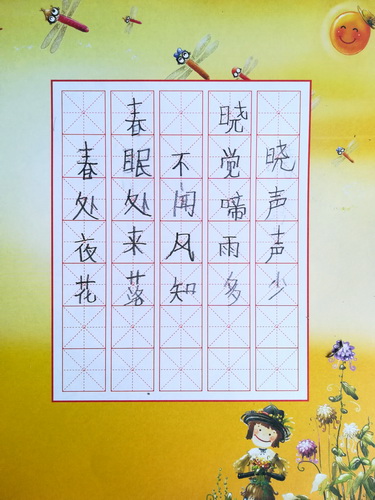 春晓
春眠不觉晓
处处闻啼声
夜来风雨声
花落知多少